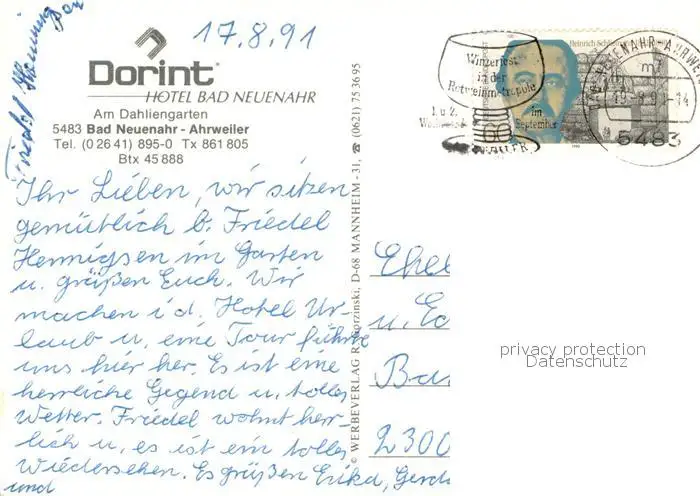 17.8.91
Dorint
HOTEL BAD NEUENAHR
Am Dahliengarten
5483 Bad Neuenahr - Ahrweiler
Tel. (0 26 41) 895-0 Tx 861 805
Btx 45 888
Ihr Lieben, wir sitzen
gemütlich b. Friedel
Hennigsen im Garten
u. grüßen Euch. Wir
machen i d. Hotel Ur-
laub u. eine Tour führte
uns hier her. Es ist eine
herrliche Gegend u. tolles
Wetter. Friedel wohnt herr-
lich u. es ist ein tolles
Wiedersehen. Es grüßen Erika, Gerda
und
Friedel
© WERBEVERLAG R. D-68 MANNHEIM - 31, ☎ (0621) 75 36 95
Winzerfest
in der
Rotweinmetropole
1. u. 2.
im
September
AHRWEILER
Heinrich
60
NEUENAHR-AHRWE
mf
5483
u.
2300
privacy protection
Datenschutz